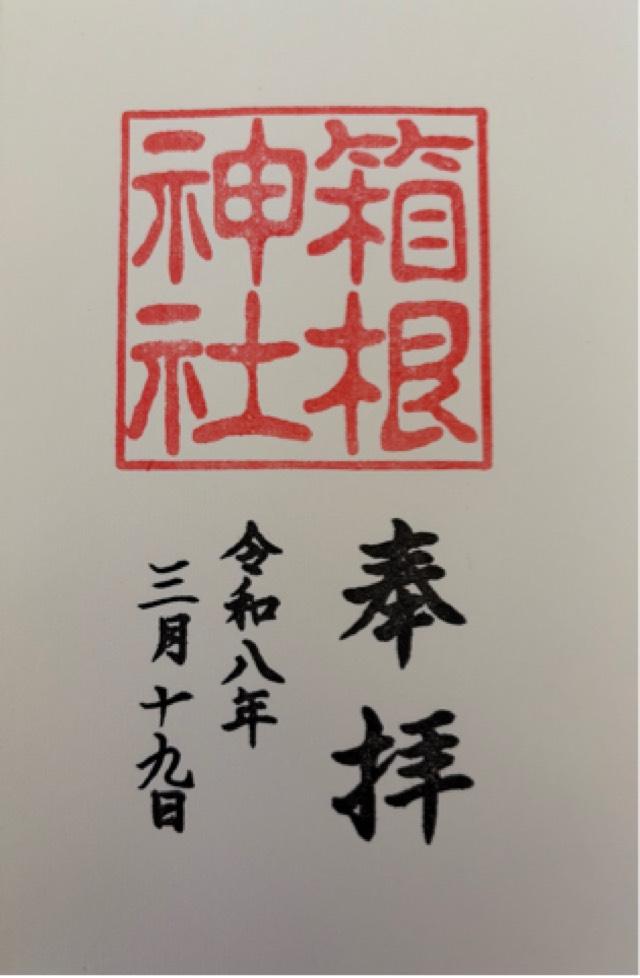 箱根
神社
奉拝
令和八年
三月十九日